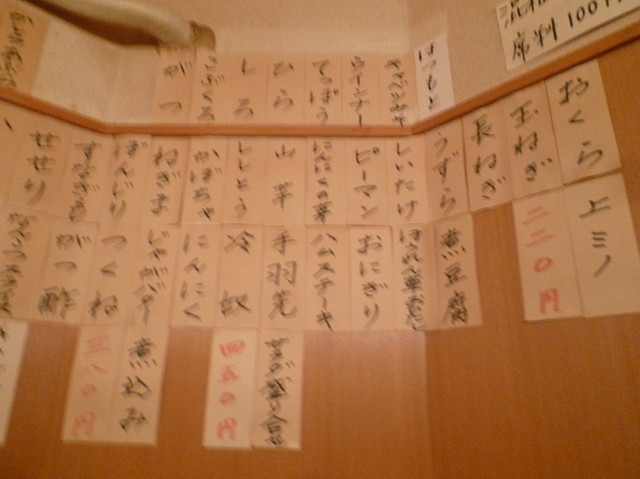 席料100円
はつもと
キャベツみそ
ウインナー
てっぽう
ひら
しろ
こぶくろ
がつ
おくら
玉ねぎ
長ねぎ
うずら
しいたけ
ピーマン
にんにくの芽
山芋
ししとう
かぼちゃ
ねぎま
ぼんじり
すなぎも
せせり
上ミノ
二二〇円
煮豆腐
おにぎり
ハムステーキ
手羽先
冷奴
にんにく
じゃがバター
つくね
がつ酢
サラダ盛り合せ
四五〇円
煮込み
三八〇円